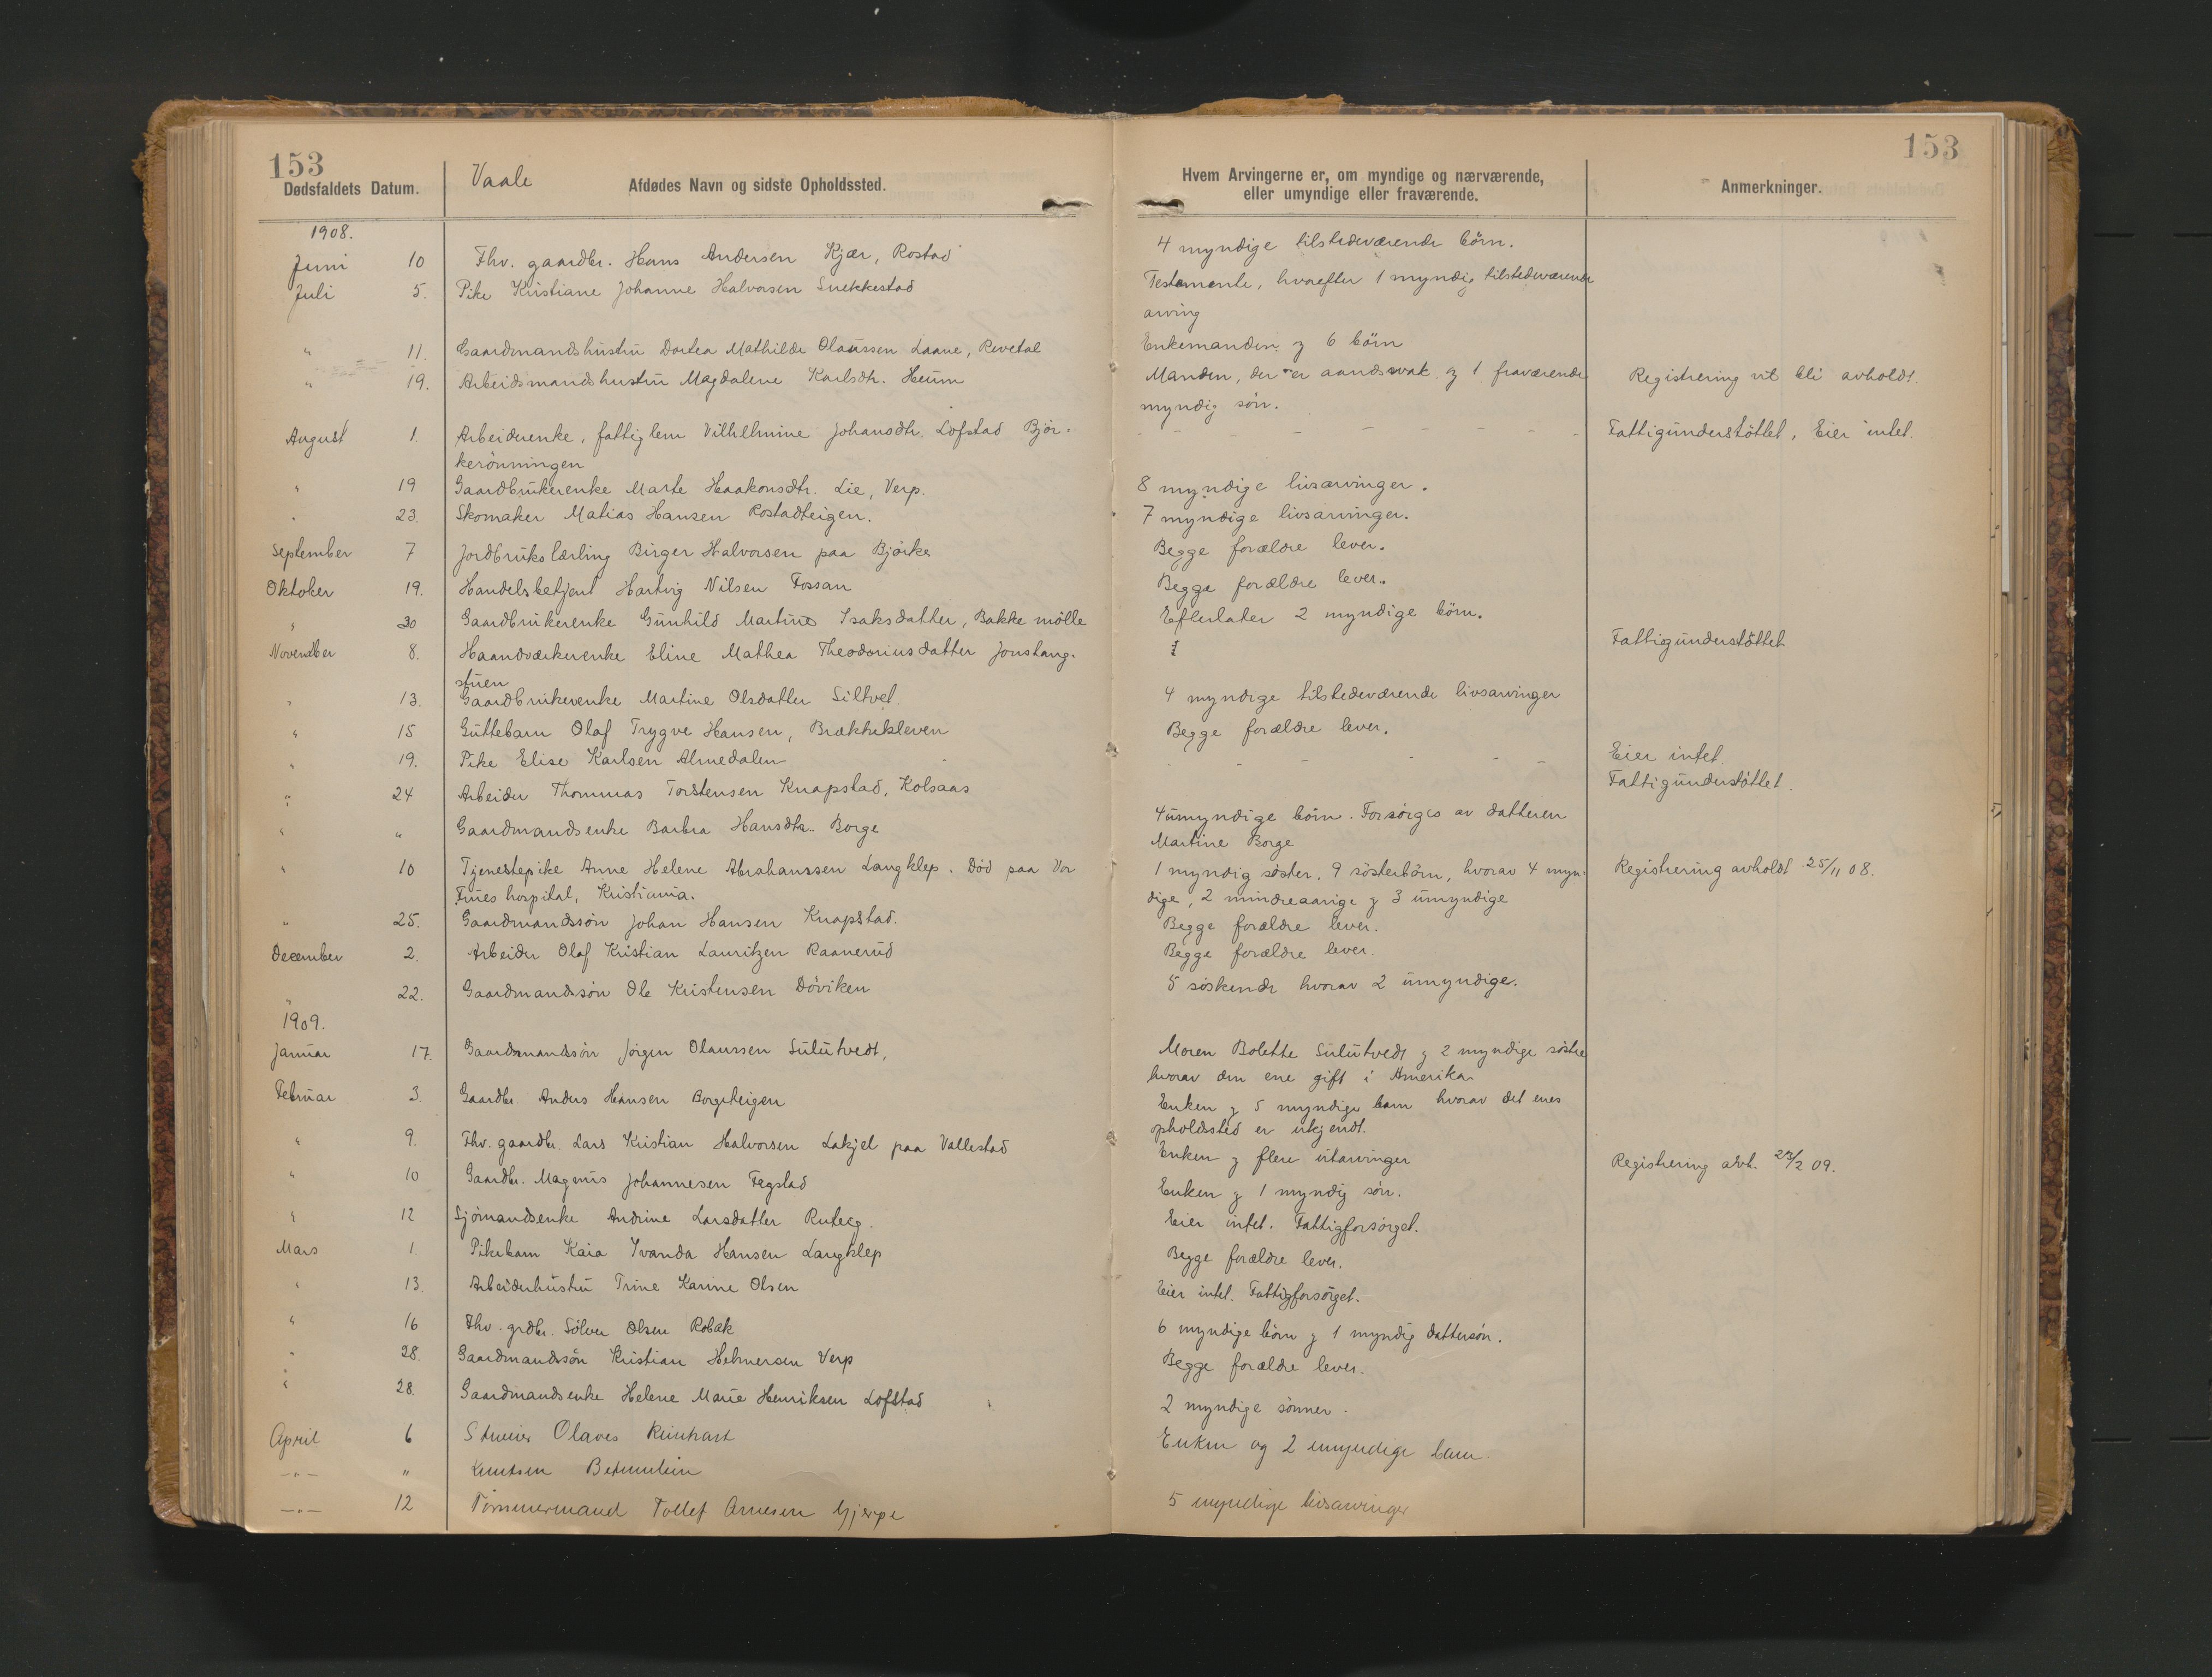 153
153
Vaale
Dødsfaldets Datum.
Afdødes Navn og sidste Opholdssted.
Hvem Arvingerne er, om myndige og nærværende,
eller umyndige eller fraværende.
Anmerkninger.
1908.
Juni 10 Fhv. gaardbr. Hans Andersen Kjær, Rostad 4 myndige tilstedeværende børn.
Juli 5. Pike Kristiane Johanne Halvorsen Snekkestad Testamente, hvorefter 1 myndig tilstedeværende
arving
" 11. Gaardmandshustru Dortea Mathilde Olaussen Laane, Revetal Enkemanden og 6 børn
" 19. Arbeidsmandshustru Magdalene Karlsdtr. Heum Manden, der er aandssvak og 1 fraværende Registrering vil bli avholdt.
myndig søn.
August 1. Arbeiderenke, fattiglem Vilhelmine Johansdtr. Lofstad Bjør- - - - - - - - Fattigunderstøttet, Eier intet.
kerønningen
" 19 Gaardbrukerenke Marte Haakonsdtr. Lie, Verp. 8 myndige livsarvinger.
" 23. Skomaker Matias Hansen Rostadteigen. 7 myndige livsarvinger.
September 7 Jordbrukslærling Birger Halvorsen paa Bjørke Begge forældre lever.
Oktober 19. Handelsbetjent Hartvig Nilsen Fossan Begge forældre lever.
" 30 Gaardbrukerenke Gunhild Martine Isaksdatter, Bakke mølle Efterlater 2 myndige børn.
November 8. Haandværkerenke Eline Mathea Theodoriusdatter Jonstang- Fattigunderstøttet
stuen
" 13. Gaardbrukerenke Martine Olsdatter Siltvet. 4 myndige tilstedeværende livsarvinger
" 15 Guttebarn Olaf Trygve Hansen, Brækkekleven Begge forældre lever.
" 19. Pike Elise Karlsen Almedalen - - - - - Eier intet.
" 24 Arbeider Thommas Torstensen Knapstad, Kolsaas Fattigunderstøttet.
" " Gaardmandsenke Barbra Hansdtr. Borge 4 umyndige børn. Forsørges av datteren
Martine Borge
" 10 Tjenestepike Anne Helene Abrahamssen Langklep. Død paa Vor 1 myndig søster, 9 søsterbørn, hvorav 4 myn- Registrering avholdt 25/11 08.
Frues hospital, Kristiania. dige, 2 mindreaarige og 3 umyndige
" 25. Gaardmandssøn Johan Hansen Knapstad. Begge forældre lever.
December 2. Arbeider Olaf Kristian Lauritzen Raanerud Begge forældre lever.
" 22. Gaardmandssøn Ole Kristensen Døviken 5 søskende hvorav 2 umyndige.
1909.
Januar 17. Gaardmandssøn Jørgen Olaussen Sulutvedt, Moren Bolette Sulutvedt og 2 myndige søstre
hvorav den ene gift i Amerika
Februar 3. Gaardbr. Anders Hansen Borgeteigen Enken og 5 myndige barn hvorav det enes
opholdssted er ukjendt.
" 9. Fhv. gaardbr. Lars Kristian Halvorsen Lakjel paa Vallestad Enken og flere utarvinger Registrering avh. 23/2 09.
" 10 Gaardbr. Magnus Johannesen Fegstad Enken og 1 myndig søn.
" 12 Sjømandsenke Andrine Larsdatter Ruteeg. Eier intet. Fattigforsørget.
Mars 1. Pikebarn Kaia Yvanda Hansen Langklep Begge forældre lever.
" 13. Arbeiderhustru Trine Karine Olsen Eier intet. Fattigforsørget.
" 16 Fhv. grdbr. Sølver Olsen Robak 6 myndige børn og 1 myndig dattersøn.
" 28. Gaardmandssøn Kristian Helmersen Verp Begge forældre lever.
" 28. Gaardmandsenke Helene Marie Henriksen Lofstad 2 myndige sønner.
April 6 Olaves Reinhart Enken og 2 umyndige barn.
-"- " Knutsen
-"- 12 Tømmermand Tollef Arnesen Gjerpe 5 myndige livsarvinger